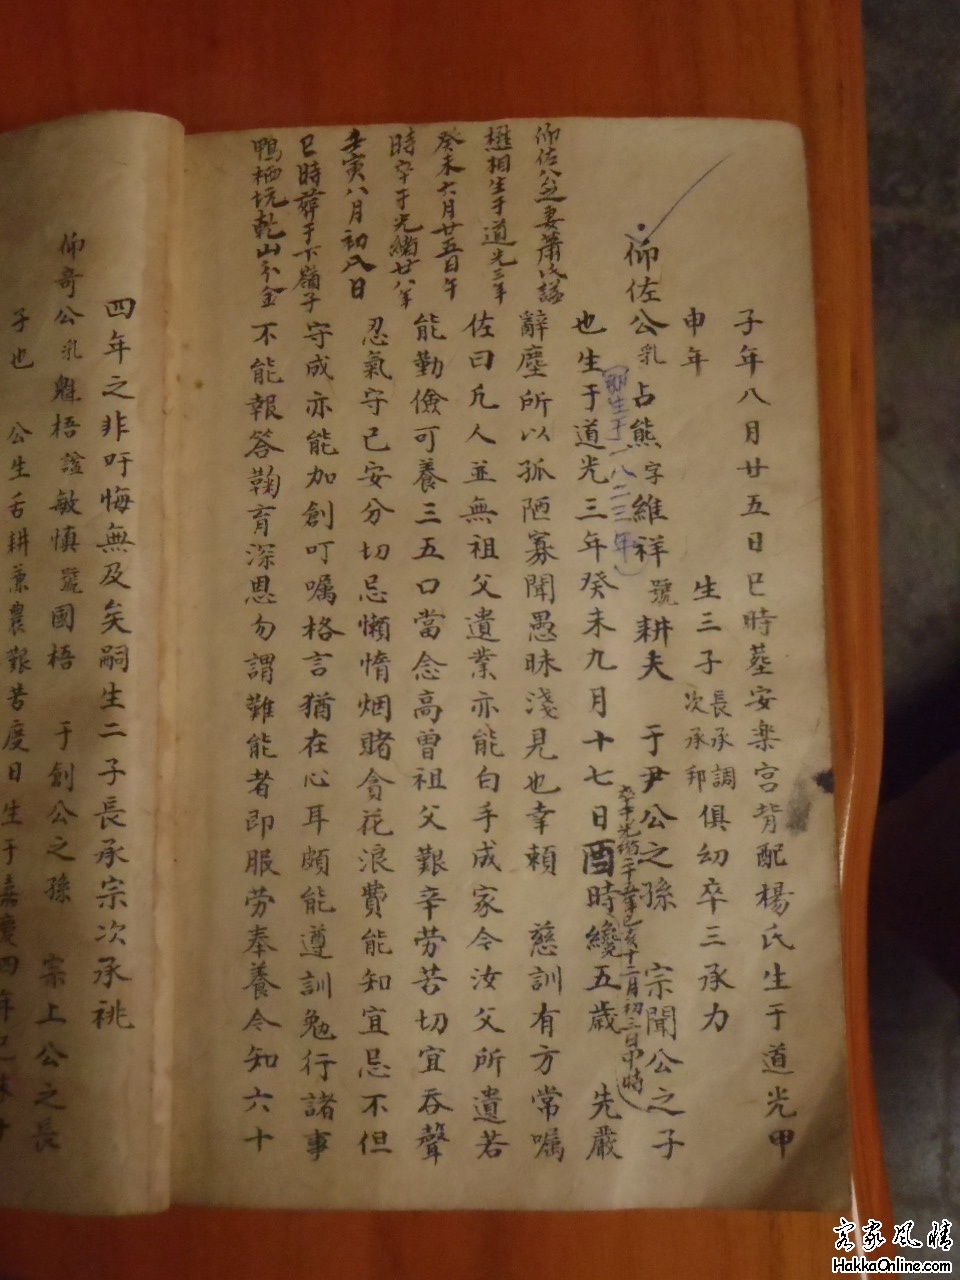 子年八月廿五日巳時塟安楽宮背配楊氏生于道光甲
申年 生三子長承調次承邦俱幼卒三承力
仰佐公乳占熊字維祥號耕夫 于尹公之孫 宗聞公之子
(即生于一八二三年)
也生于道光三年癸未九月十七日酉時纔五歲 先嚴
卒于光緒二十五年己亥十二月初三日申時
辭塵所以孤陋寡聞愚昧淺見也幸賴 慈訓有方常嘱
佐曰凡人並無祖父遺業亦能白手成家令汝父所遺若
能勤儉可養三五口當念高曾祖父艱辛劳苦切宜吞聲
忍氣守己安分切忌懶惰烟賭貪花浪費能知宜忌不但
守成亦能加創叮嘱格言猶在心耳頗能遵訓勉行諸事
不能報答鞠育深恩勿謂難能者即服劳奉養今知六十
仰佐公之妻蕭氏諡
懋相生于道光三年
癸未六月廿五日午
時卒于光緒廿八年
壬寅八月初八日
巳時葬于下嶺子
鴨栖坑乾山分金
四年之非吁悔無及矣嗣生二子長承宗次承祧
仰奇公乳魁梧諡敏慎號國梧 于創公之孫 宗上公之長
子也 公生舌耕兼農艱苦度日生于嘉慶四年己未
客家风情
HakkaOnline.com